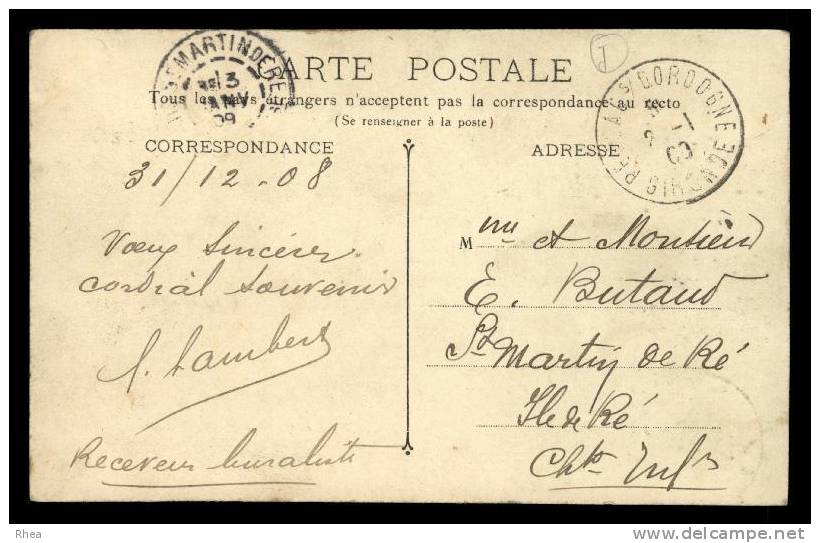 CARTE POSTALE
Tous les pays étrangers n'acceptent pas la correspondance au recto
(Se renseigner à la poste)
CORRESPONDANCE
31/12.08
Vœux sincères
cordial souvenir
Lambert
Receveur buraliste
ST MARTIN DE RÉ
3
JANV
09
ADRESSE
S/DORDOGNE
GIRONDE
Mme et Monsieur
E. Butaud
St Martin de Ré
Ile de Ré
Chte Infre
I
Rhea
www.delcampe.net